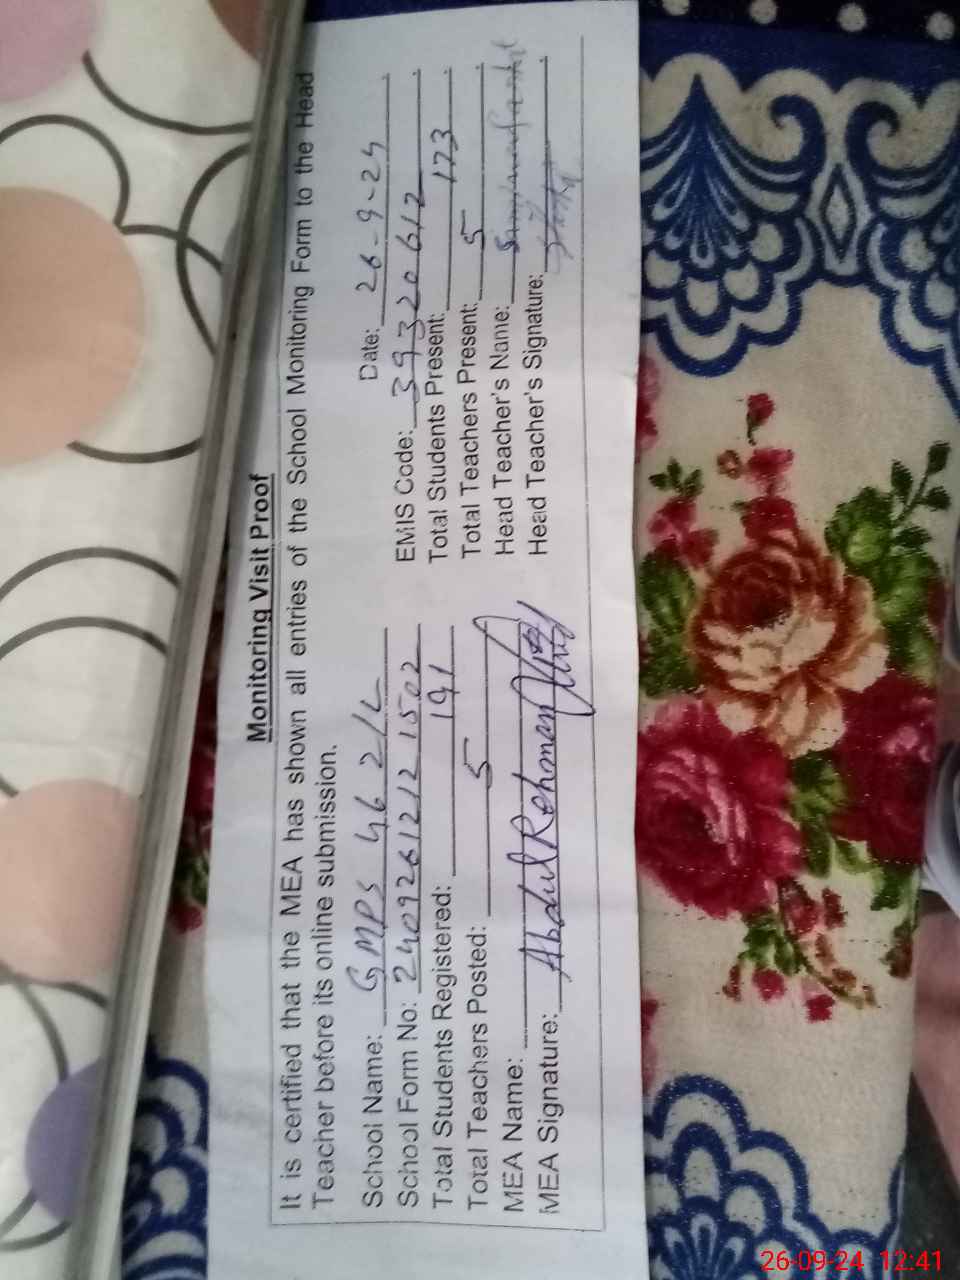 Monitoring Visit Proof
It is certified that the MEA has shown all entries of the School Monitoring Form to the Head
Teacher before its online submission.
Date: 26-9-24
School Name: GMPS 462/L
EMIS Code: 39320612
School Form No: 2409261212 1502
Total Students Present: 173
Total Students Registered: 191
Total Teachers Present: 5
Total Teachers Posted: 5
Head Teacher's Name:
MEA Name: Abdul Rehman
Head Teacher's Signature:
MEA Signature:
26-09-24 12:41